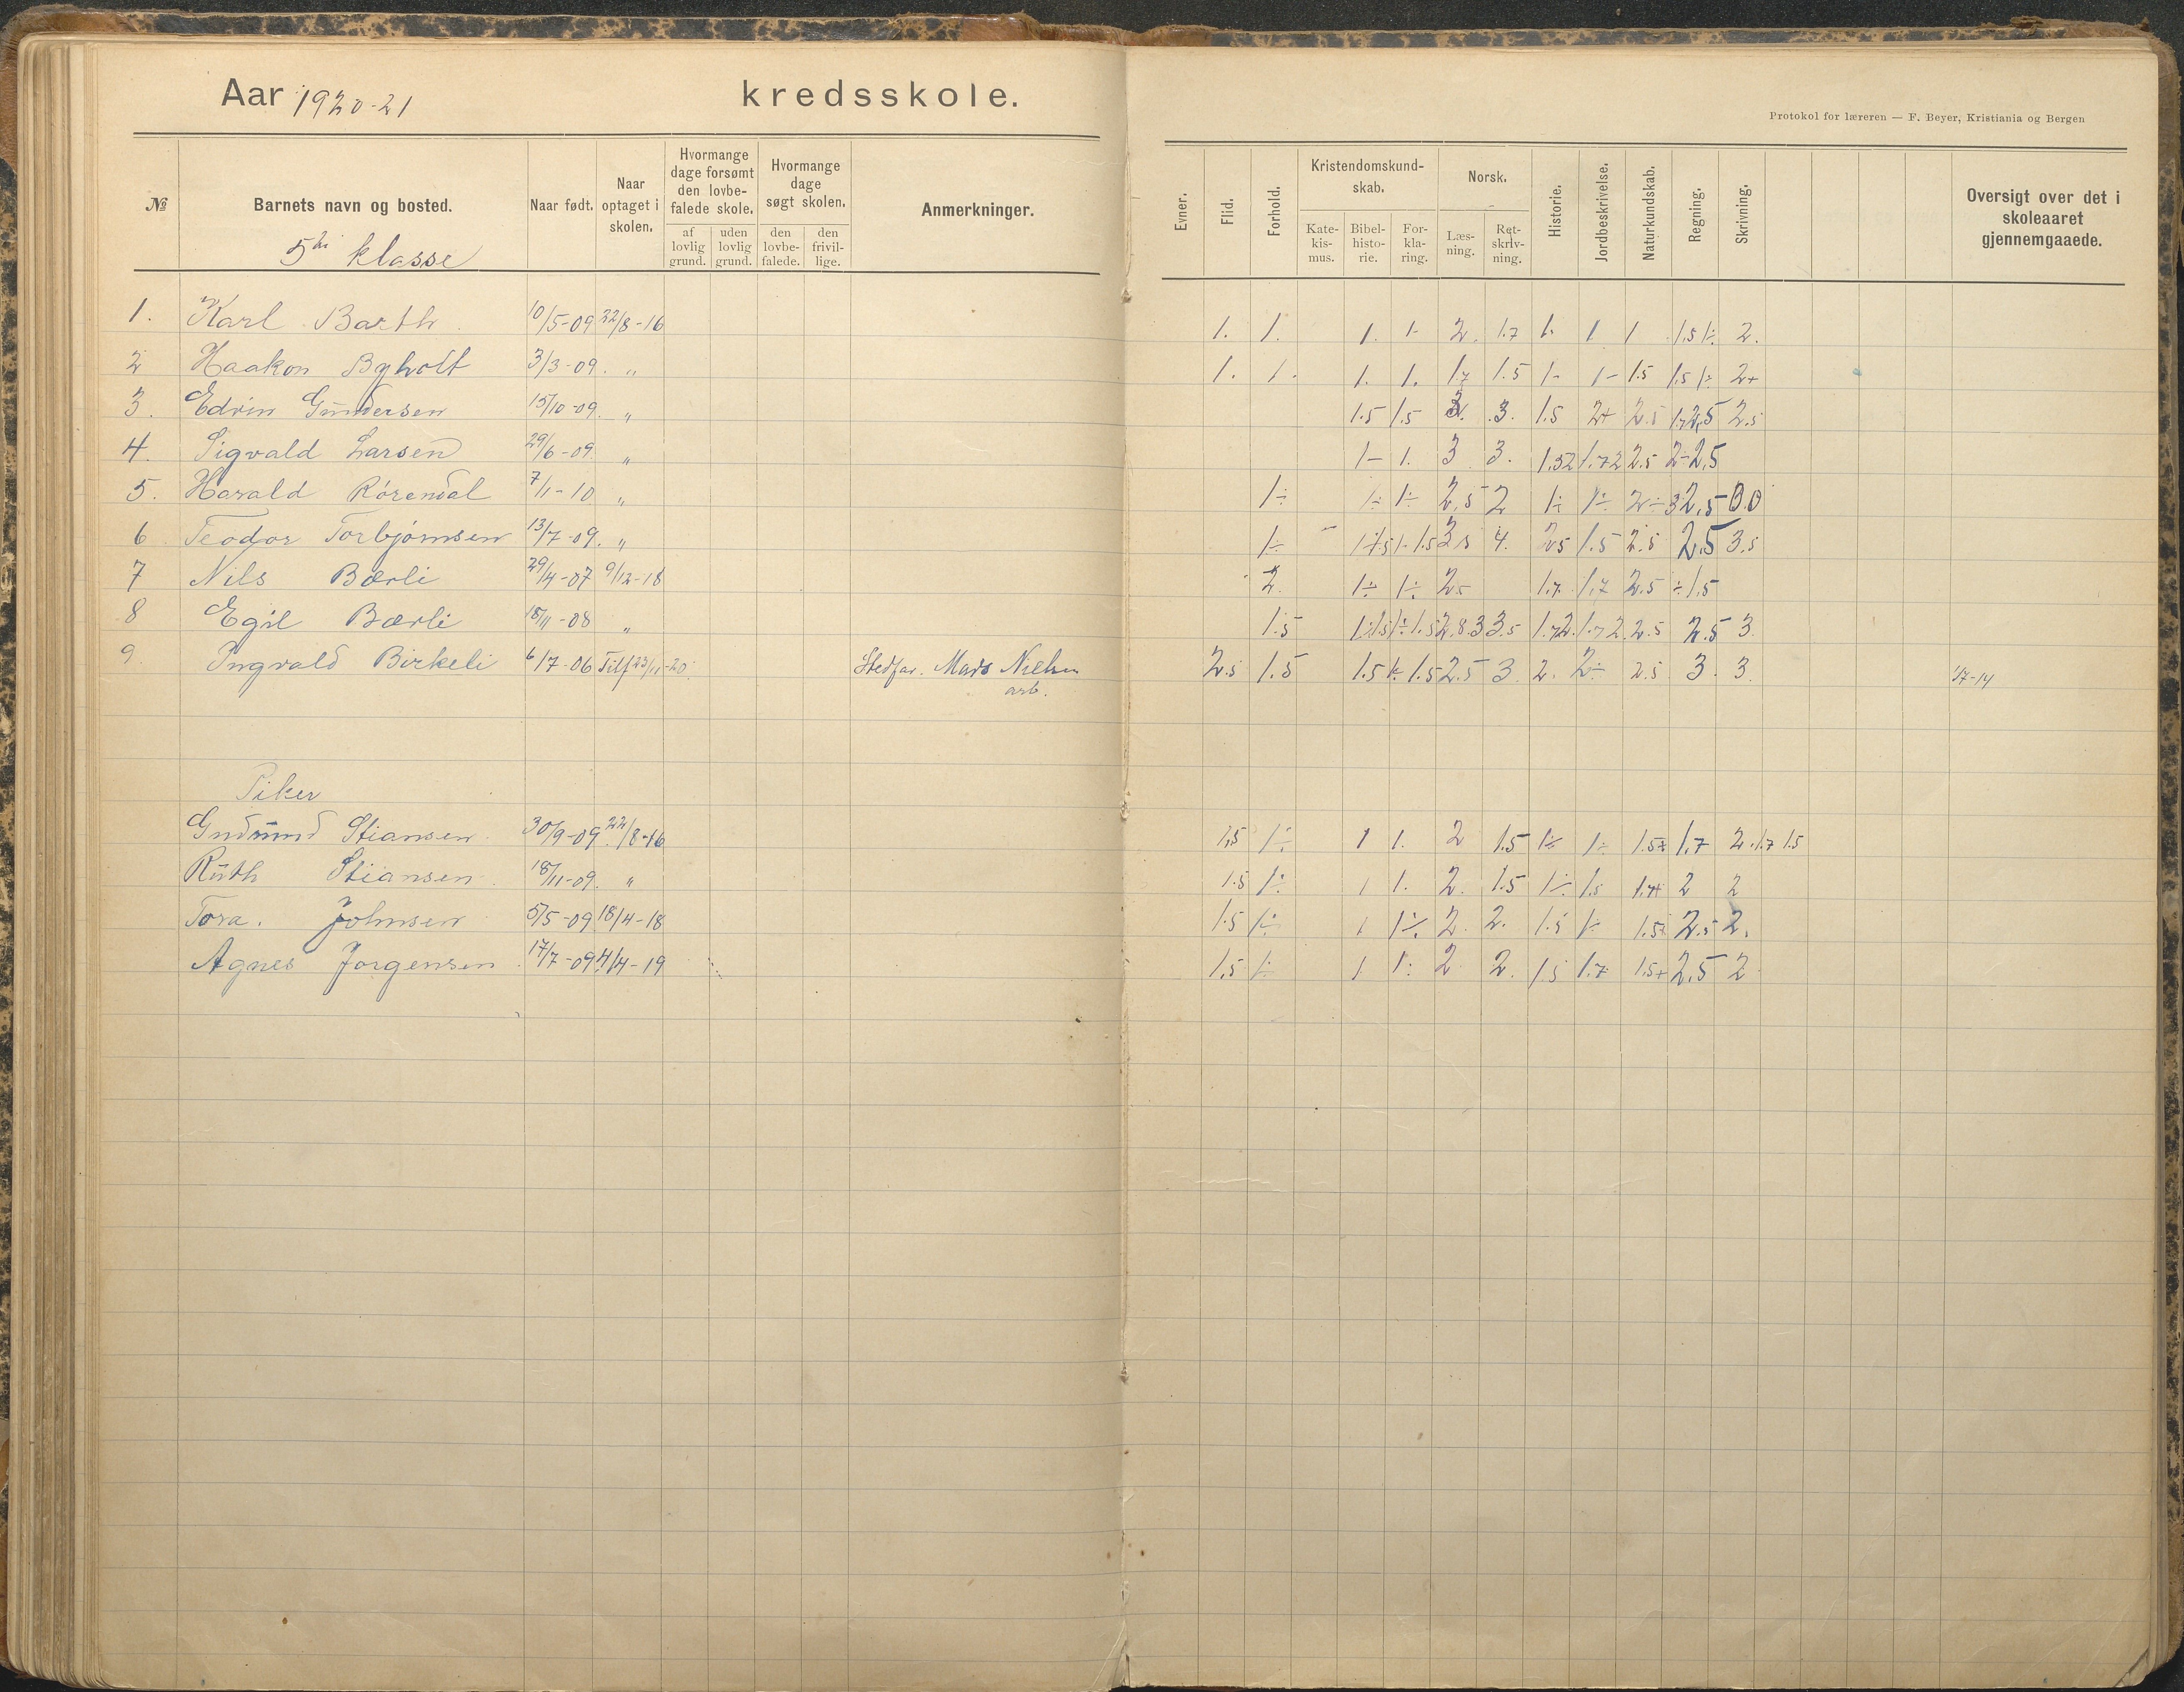 Aar 1920-21 kredsskole.
Protokol for læreren — F. Beyer, Kristiania og Bergen
№ Barnets navn og bosted. Naar født. Naar optaget i skolen. Hvormange dage forsømt den lovbefalede skole. af lovlig grund. uden lovlig grund. Hvormange dage søgt skolen. den lovbefalede. den frivillige. Anmerkninger.
Evner. Flid. Forhold. Kristendomskundskab. Katekismus. Bibelhistorie. Forklaring. Norsk. Læsning. Retskrivning. Historie. Jordbeskrivelse. Naturkundskab. Regning. Skrivning. Oversigt over det i skoleaaret gjennemgaaede.
5te klasse
1. Karl Barth 10/5-09 22/8-16 1. 1. 1. 1- 2. 1.7 1. 1 1 1.5 1÷ 2.
2 Haakon Byholt 3/3-09. " 1. 1. 1. 1. 1.7 1.5 1- 1- 1.5 1.5 1÷ 2+
3. Edvin Gundersen 15/10-09. " 1.5 1.5 3. 1.5 2+ 2.5 2.5
4. Sigvald Larsen 29/6-09. " 1- 1. 3 3. 1.5 2 1.7 2 2.5 2- 2,5
5. Harald Rörendal 7/1-10 " 1÷ 1÷ 1÷ 2,5 2 1÷ 1÷ 2÷ 3 2,5
6 Teodor Torbjörnsen 13/7-09. " 1÷ 4. 2.5 1.5 2.5 2.5 3.5
7 Nils Bærli 29/4-07 9/12-18 2. 1÷ 1÷ 2.5 1.7 1.7 2.5 ÷1,5
8 Egil Bærli 18/11-08 " 1.5 3.5 1.7 2. 1.7 2. 2.5 2.5 3.
9. Ingvald Birkeli 6/7-06 Tilf 23/11-20. Stedfar. Mads Nielsen 2.5 1.5 1.5 1÷ 1.5 2.5 3. 2. 2÷ 2.5 3. 3. 1/7-14
arb.
Piker
Gudmund Stiansen 30/9-09. 22/8-16 1,5 1÷ 1 1. 2 1.5 1÷ 1÷ 1.5+ 1.7 2. 1.7 1.5
Ruth Stiansen 18/11-09. " 1.5 1÷ 1 1. 2. 1.5 1÷ 1.5 1.7+ 2 2
Tora. Johnsen 5/5-09 18/4-18 1.5 1÷ 1 1÷ 2. 2. 1.5 1÷ 1.5+ 2.5 2.
Agnes Jorgensen 17/7-09 4/4-19 1,5 1÷ 1 1÷ 2 2. 1.5 1.7 1.5+ 2,5 2